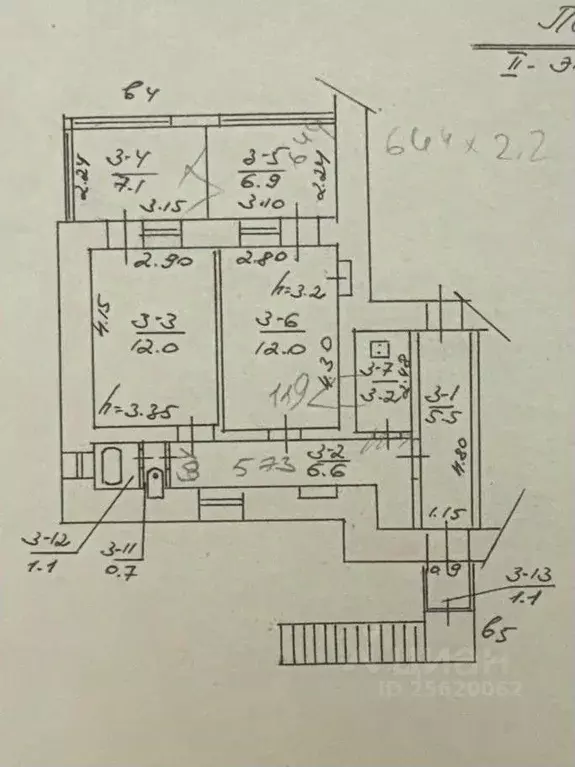 II- Э
в4
644 x 2.2
3-4
7.1
2.24
3.15
3-5
6.9
2.24
3.10
2.90
2.80
h=3.2
4.15
3-3
12.0
h=3.35
3-6
12.0
4.30
119
3-7
3.2
2.48
3-1
5.5
4.80
1.15
573
3-2
6.6
3-12
1.1
3-11
0.7
0.9
3-13
1.1
в5
циан
ID 25620062